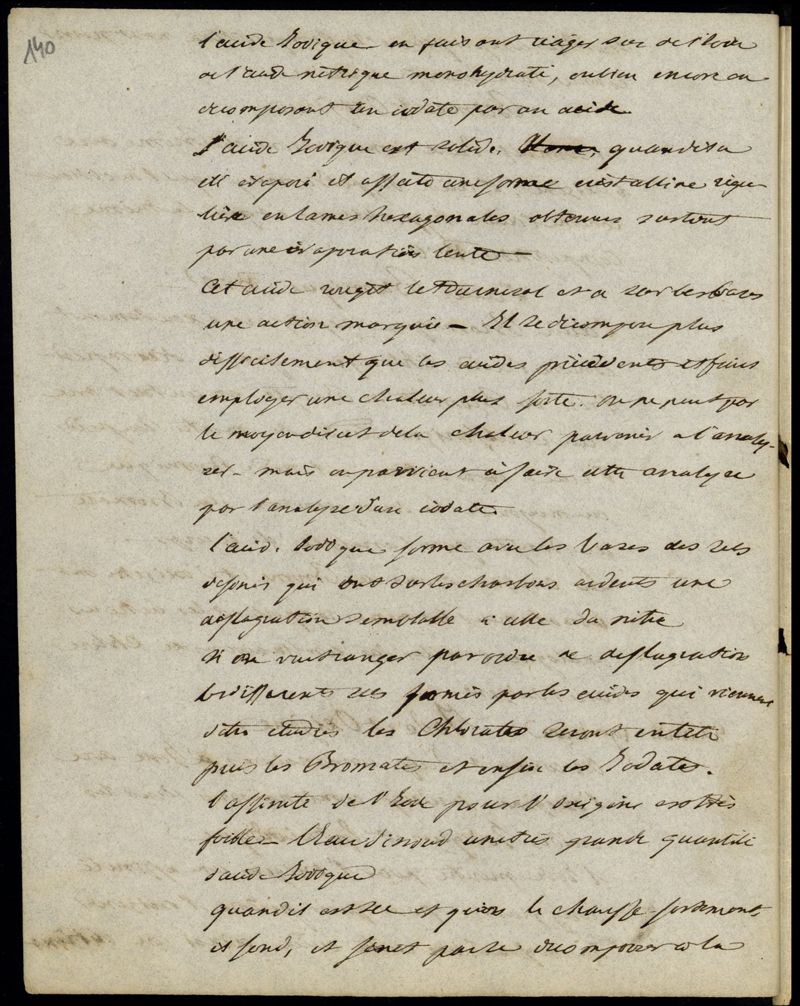 140
l'acide Iodique en faisant réagir sur de l'Iode
de l'acide nitrique monohydraté, ou bien encore en
décomposant un iodate par un acide
L'acide Iodique est solide. quand on a
évaporé et affecte une forme cristalline régu-
lière en lames hexagonales obtenues surtout
par une évaporation lente —
Cet acide rougit le tournesol et a sur les bases
une action marquée — Il se décompose plus
difficilement que les acides précédents
employer une chaleur plus forte. On ne peut par
le moyen direct de la chaleur parvenir à l'analy-
ser — mais on parvient à faire cette analyse
par l'analyse d'un iodate.
l'acid. Iodique forme avec les bases des sels
définis qui ont sur les charbons ardents une
deflagration semblable à celle du nitre
Si on veut ranger par ordre de deflagration
les différents sels formés par les acides qui viennent
d'être étudiés les Chlorates seront en tête
puis les Bromates et enfin les Iodates.
l'affinité de l'Iode pour l'oxigène est très
faible — L'eau dissoud une très grande quantité
d'acide Iodique
quand il est sec et qu'on le chauffe fortement,
il fond, et finit par se décomposer